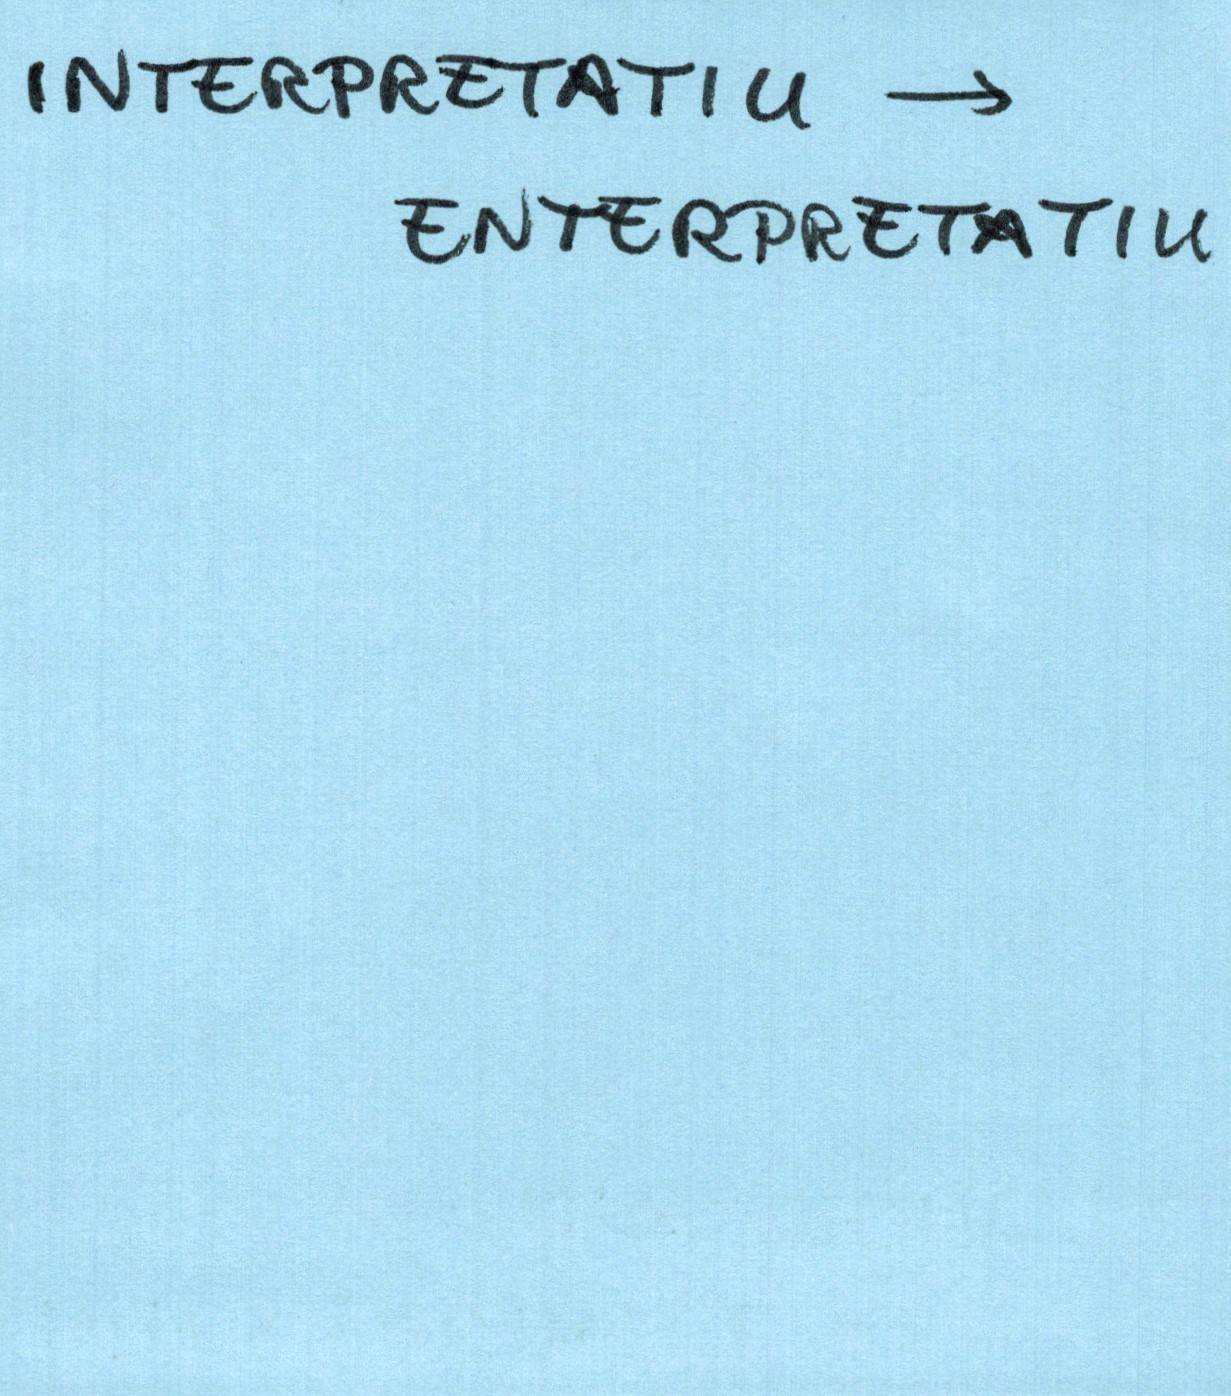 INTERPRETATIU →
ENTERPRETATIU